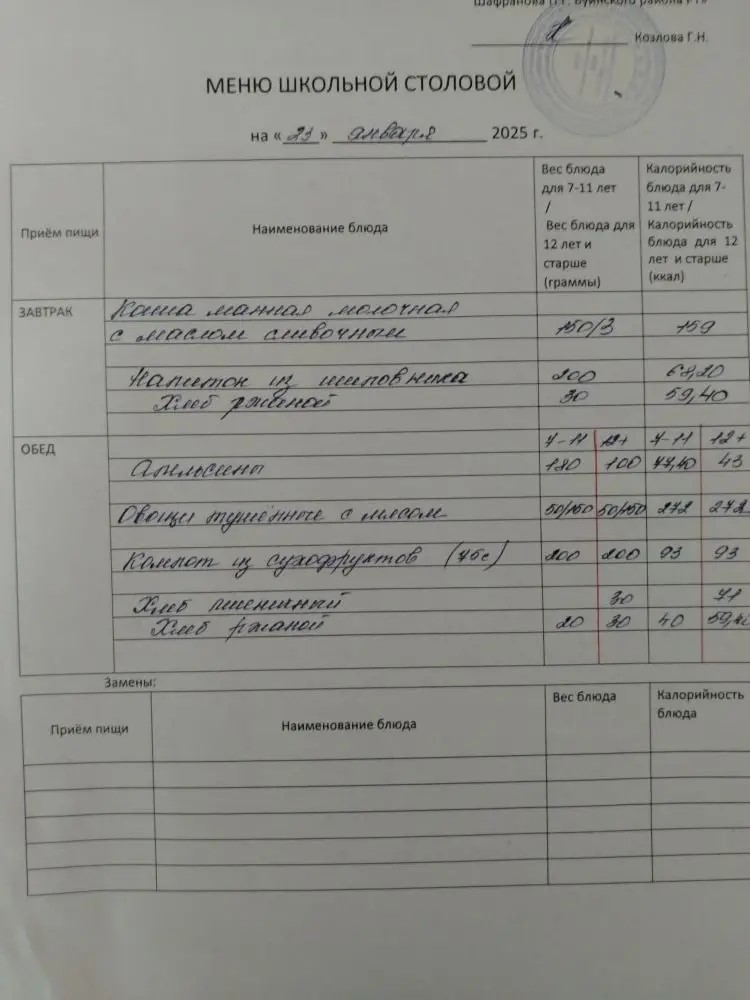 Шафранова п.г. Буинского района РТ»
Козлова Г.Н.
МЕНЮ ШКОЛЬНОЙ СТОЛОВОЙ
на « 23 » января 2025 г.
Приём пищи
Наименование блюда
Вес блюда
для 7-11 лет
/
Вес блюда для
12 лет и
старше
(граммы)
Калорийность
блюда для 7-
11 лет /
Калорийность
блюда для 12
лет и старше
(ккал)
ЗАВТРАК
Каша манная молочная
с маслом сливочным 150/3 159
Напиток из шиповника 200 68,20
Хлеб ржаной 30 59,40
ОБЕД
7-11 12+ 7-11 12+
Апельсины 180 100 77,40 43
Овощи тушённые с мясом 50/150 50/150 272 272
Компот из сухофруктов (75с) 200 200 93 93
Хлеб пшеничный 30 71
Хлеб ржаной 20 30 40 59,40
Замены:
Приём пищи
Наименование блюда
Вес блюда
Калорийность
блюда